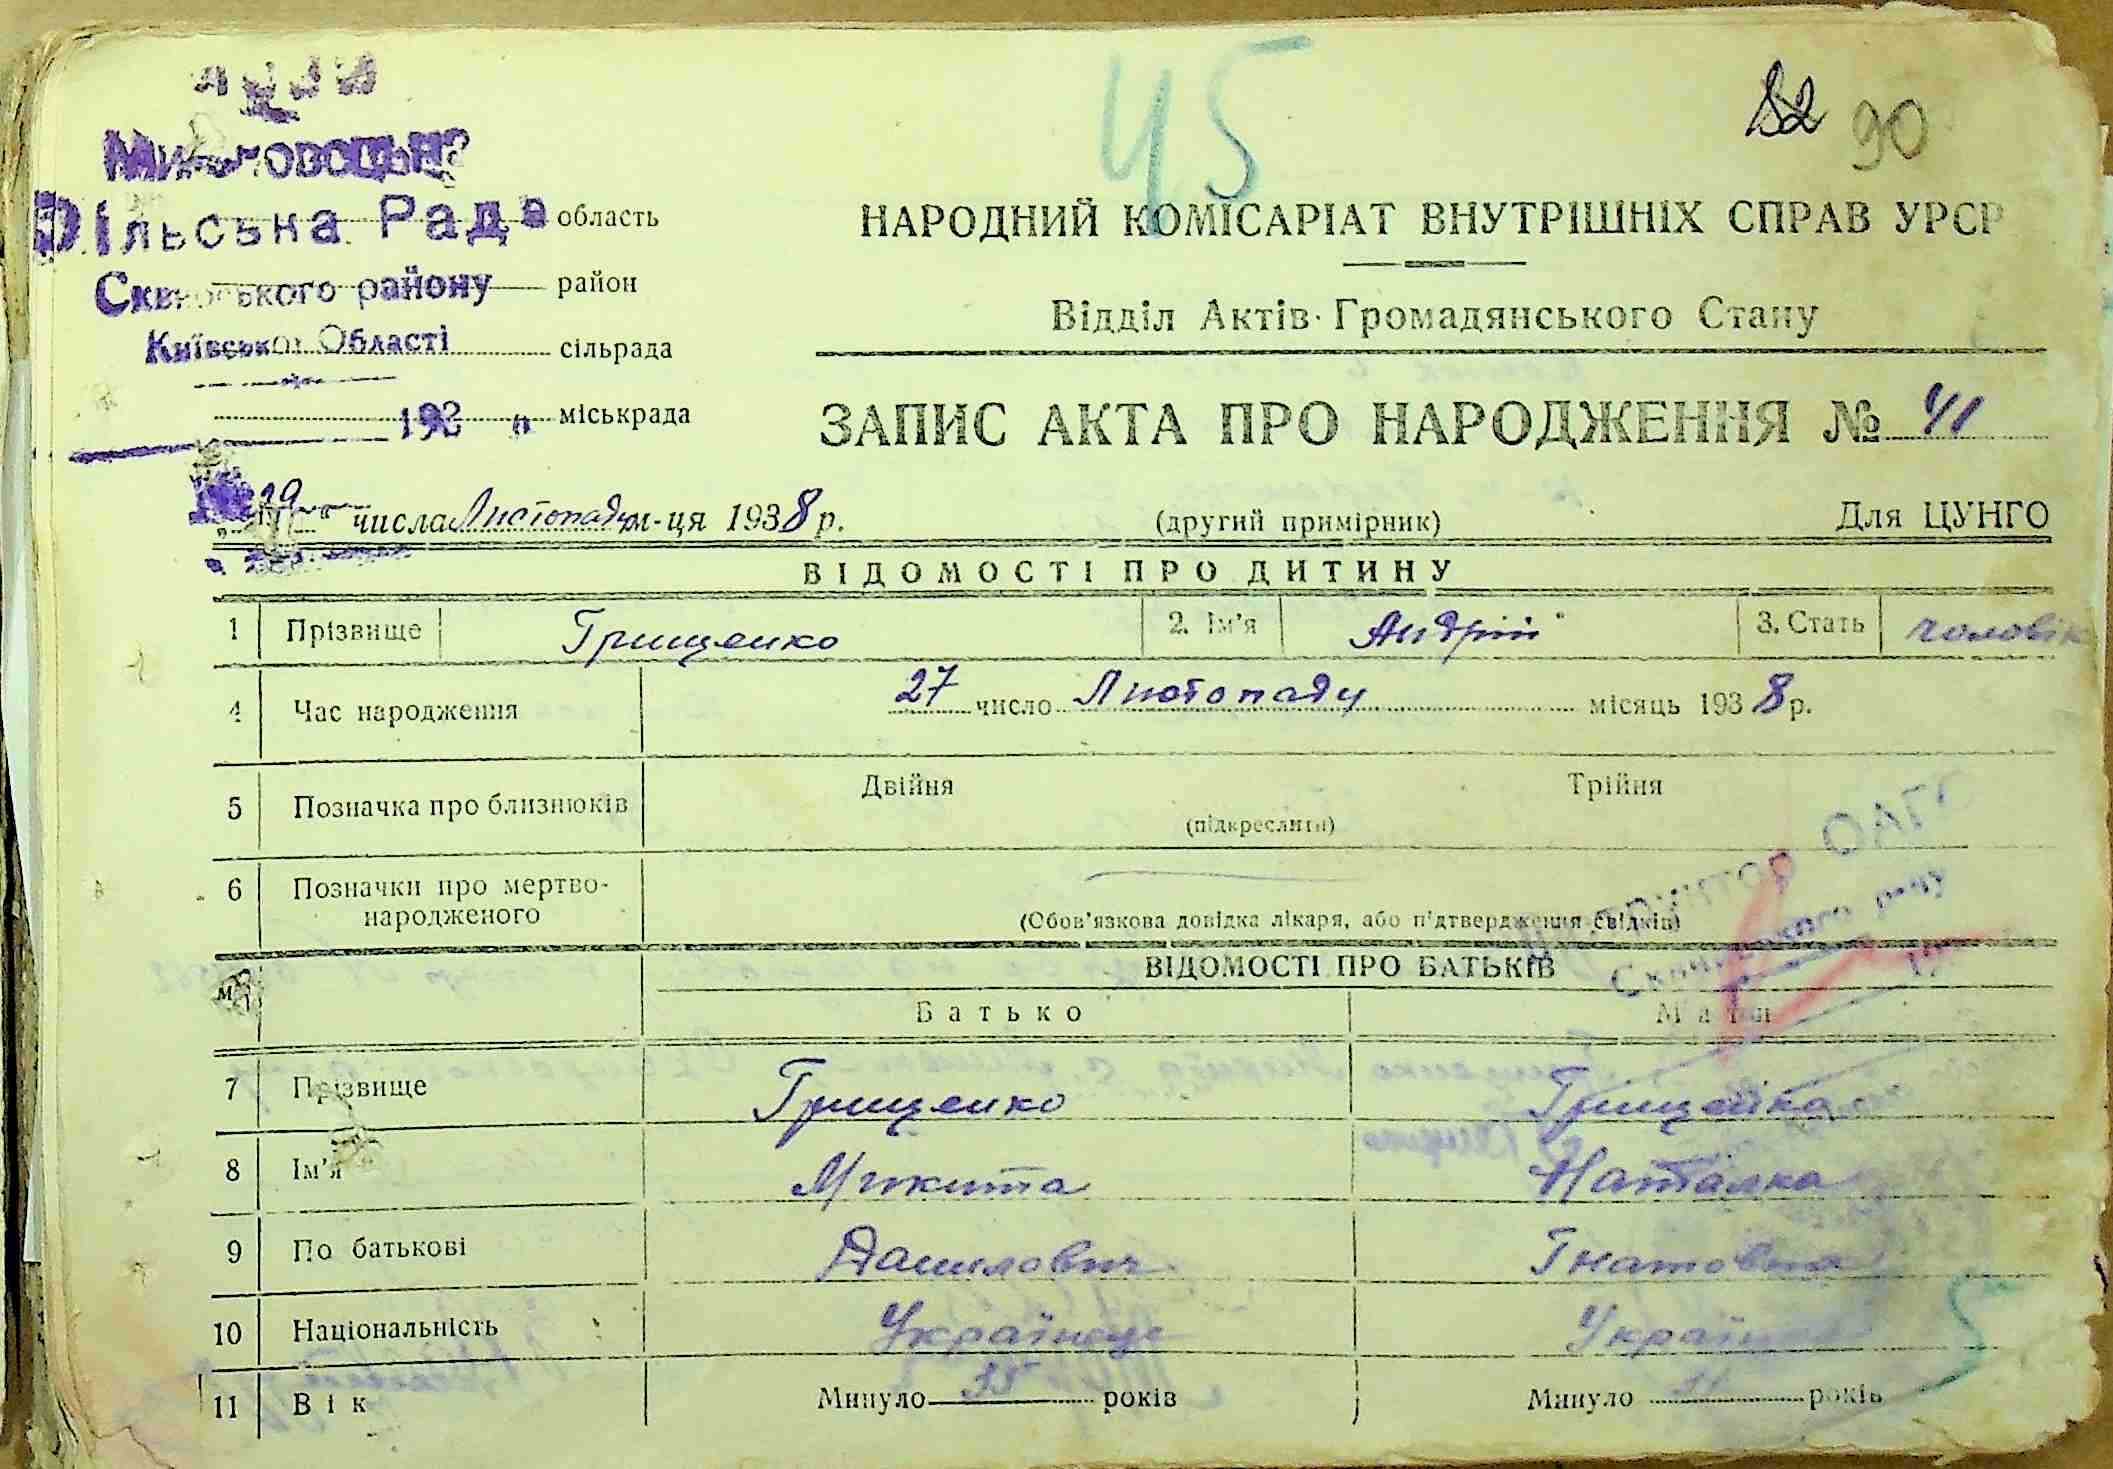 45
82 90
Сільська Рада область
Сквирського району район
Київської Області сільрада
193 р міськрада
НАРОДНИЙ КОМІСАРІАТ ВНУТРІШНІХ СПРАВ УРСР
Відділ Актів Громадянського Стану
ЗАПИС АКТА ПРО НАРОДЖЕННЯ № 41
„29“ числа Листопаду м-ця 1938 р. (другий примірник) Для ЦУНГО
ВІДОМОСТІ ПРО ДИТИНУ
1 Прізвище Грищенко 2. Ім'я Андрій 3. Стать чоловік
4 Час народження 27 число Листопаду місяць 1938 р.
5 Позначка про близнюків Двійня Трійня
(підкреслити)
6 Позначки про мертво-
народженого
(Обов'язкова довідка лікаря, або підтвердження свідків)
ВІДОМОСТІ ПРО БАТЬКІВ
Батько Мати
7 Прізвище Грищенко Грищенко
8 Ім'я Микита Наталка
9 По батькові Данилович Гнатовна
10 Національність Українець Українка
11 Вік Минуло 35 років Минуло 31 років
5